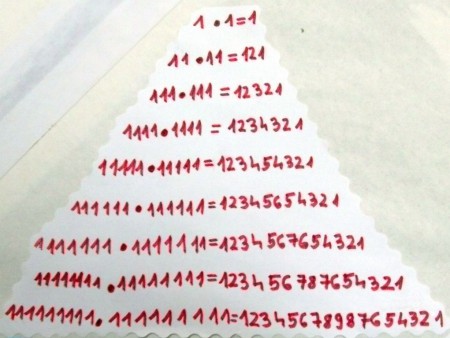 1 • 1=1
11 • 11 = 121
111 • 111 = 12321
1111 • 1111 = 1234321
11111 • 11111 = 123454321
111111 • 111111 = 12345654321
1111111 • 1111111 = 1234567654321
11111111 • 11111111 = 123456787654321
111111111 • 111111111 = 12345678987654321